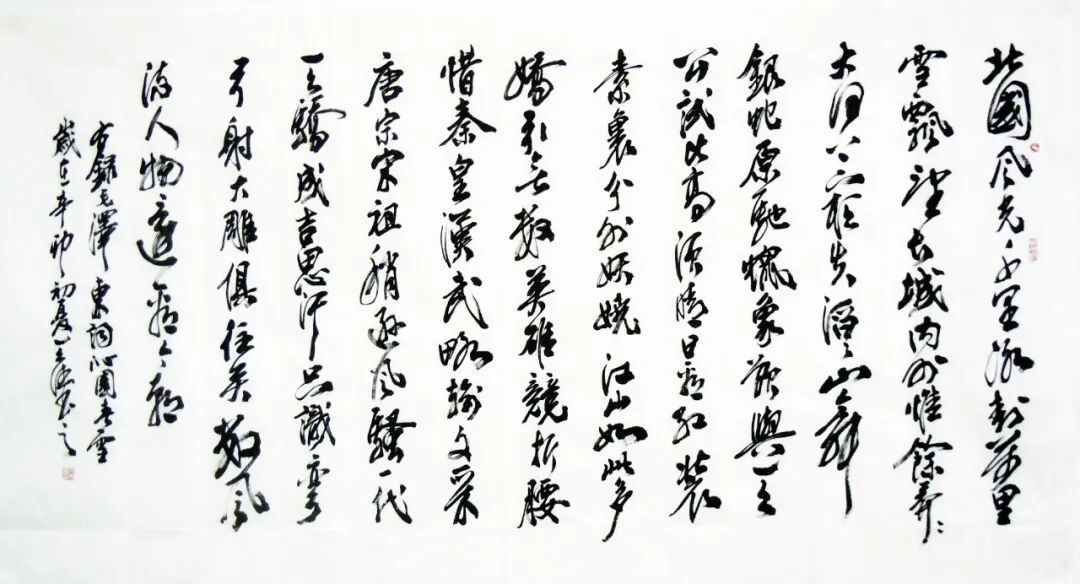 北國風光千里冰封萬里
雪飄望長城內外惟餘莽々
大河上下頓失滔々山舞
銀蛇原馳蠟象欲與天
公試比高須晴日看紅裝
素裹分外妖嬈江山如此多
嬌引無數英雄競折腰
惜秦皇漢武略輸文采
唐宗宋祖稍遜風騷一代
天驕成吉思汗只識彎
弓射大雕俱往矣數風
流人物還看今朝
右錄毛澤東詞沁園春雪
歲在辛卯初夏書之